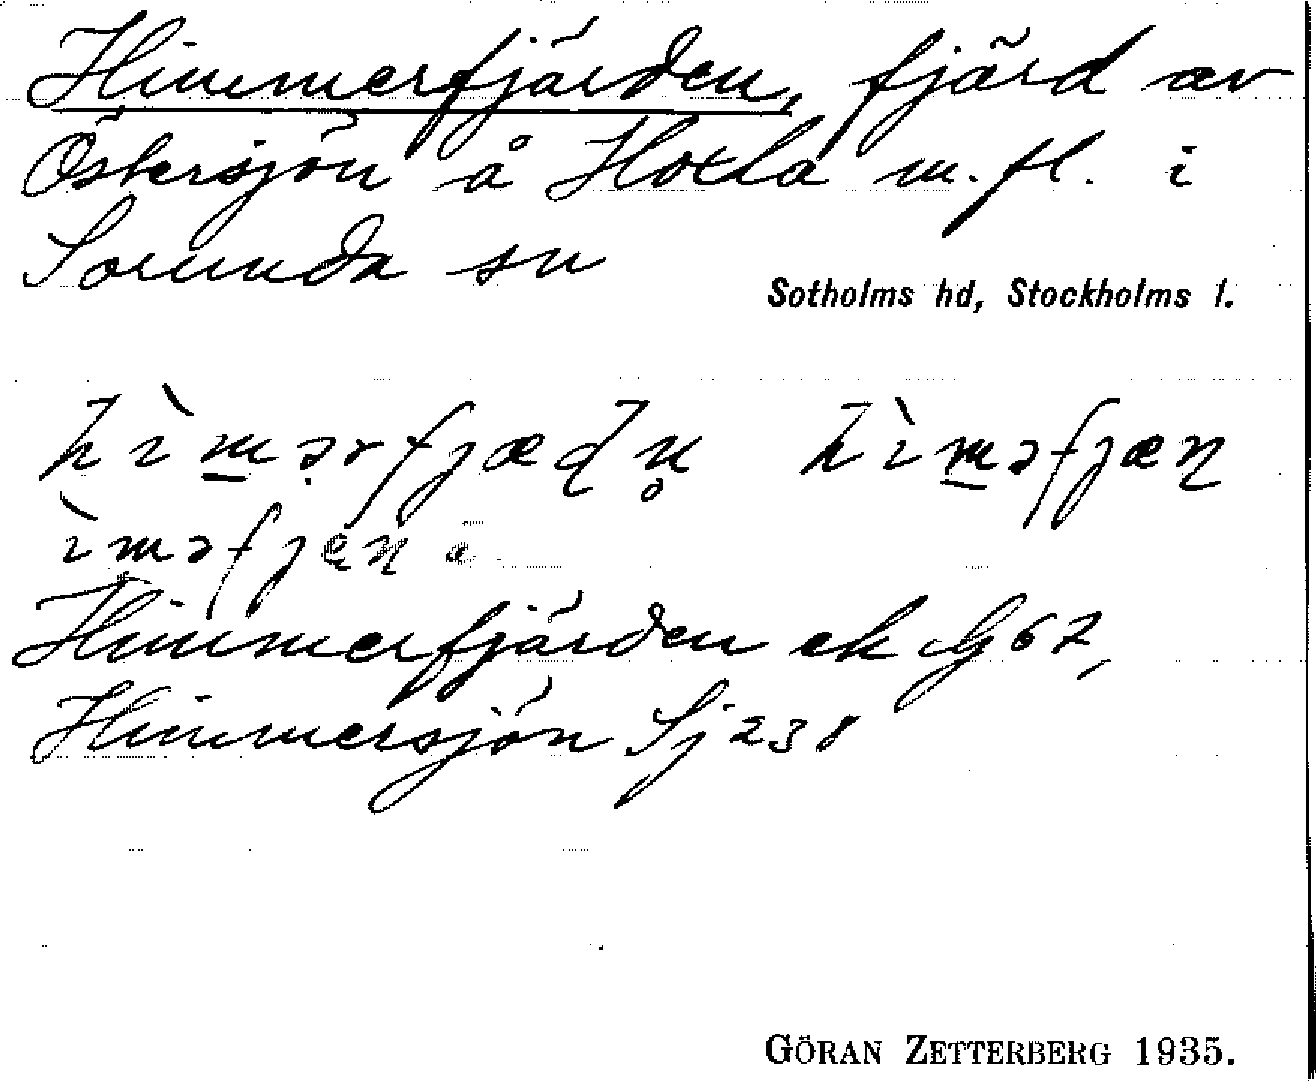 Himmerfjärden, fjärd av
Östersjön å Hoxla m.fl. i
Sorunda sn
Sotholms hd, Stockholms l.
hìm̲ərfjæɖn̥ hìm̲əfjæɳ
ìməfjæɳ
Himmerfjärden ek G 67,
Himmersjön Sj 238
GÖRAN ZETTERBERG 1935.